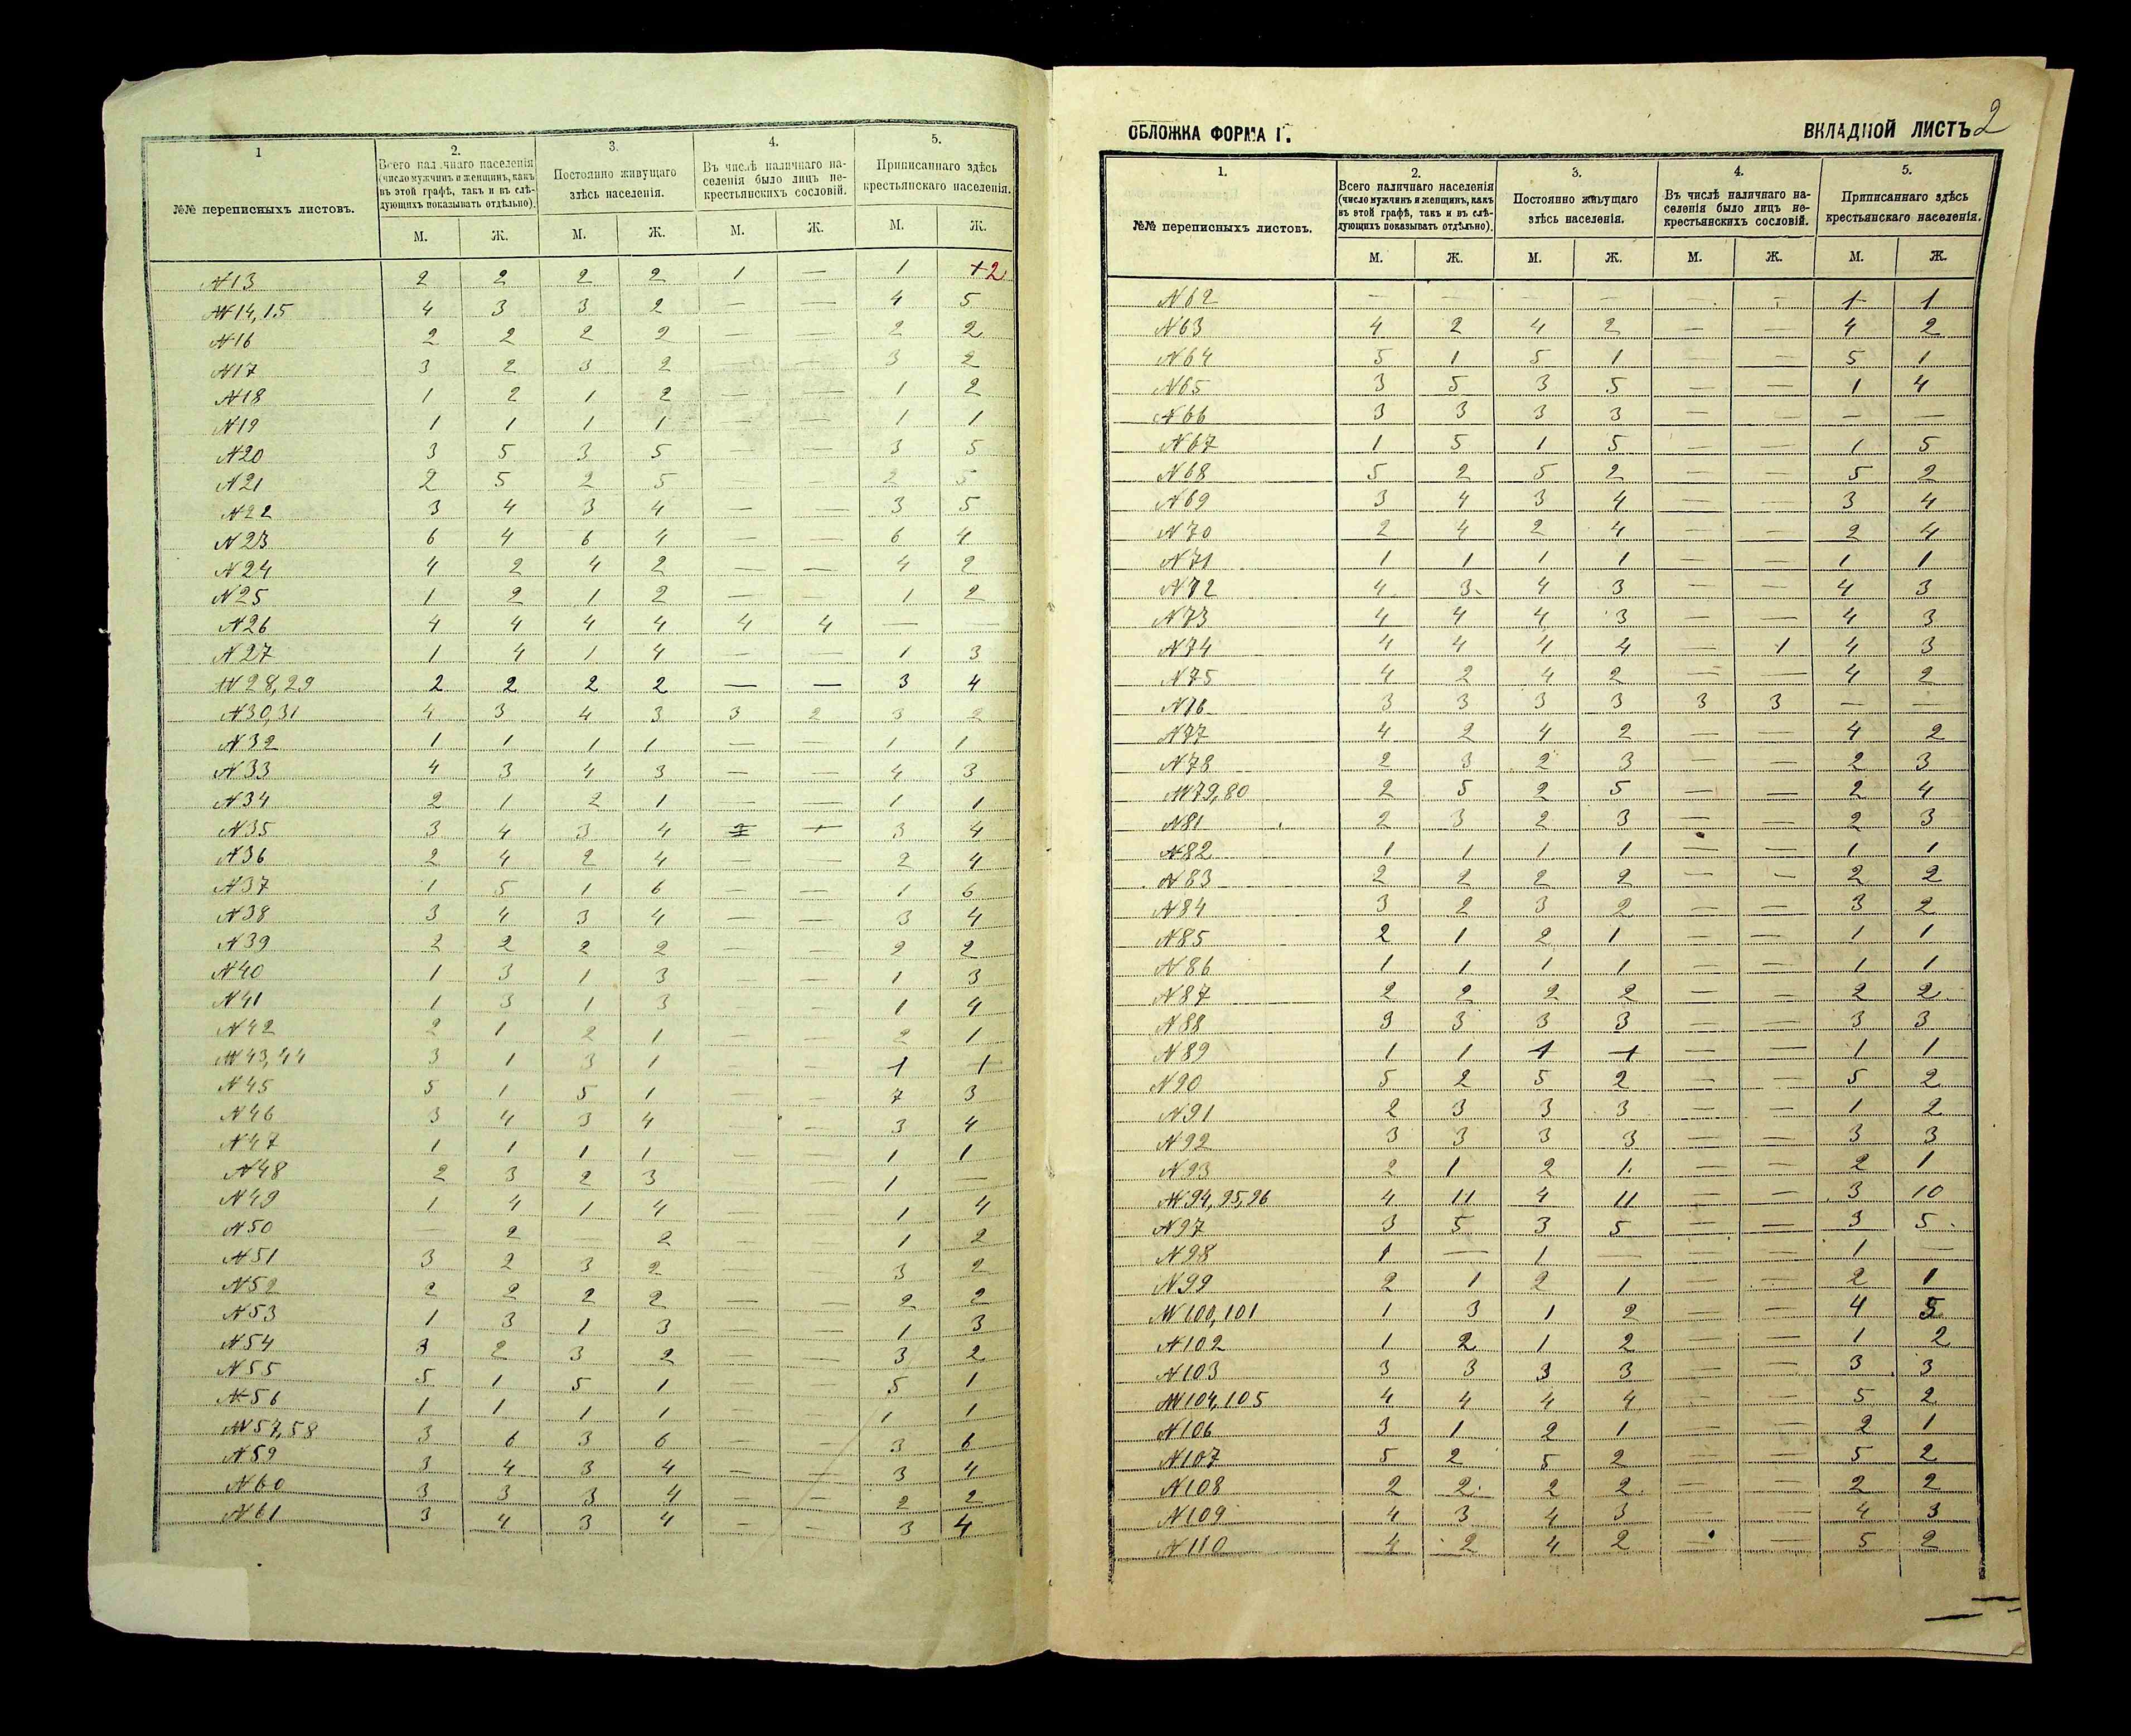 1
2.
3.
4.
5.
№№ переписныхъ листовъ.
Всего наличнаго населенія
(число мужчинъ и женщинъ, какъ
въ этой графѣ, такъ и въ слѣ-
дующихъ показывать отдѣльно).
Постоянно живущаго
здѣсь населенія.
Въ числѣ наличнаго на-
селенія было лицъ не-
крестьянскихъ сословій.
Приписаннаго здѣсь
крестьянскаго населенія.
М. Ж. М. Ж. М. Ж. М. Ж.
№13 2 2 2 2 1 — 1 1 2
№№14,15 4 3 3 2 — — 4 5
№16 2 2 2 2 — — 2 2
№17 3 2 3 2 — — 3 2
№18 1 2 1 2 — — 1 2
№19 1 1 1 1 — — 1 1
№20 3 5 3 5 — — 3 5
№21 2 5 2 5 — — 2 5
№22 3 4 3 4 — — 3 5
№23 6 4 6 4 — — 6 4
№24 4 2 4 2 — — 4 2
№25 1 2 1 2 — — 1 2
№26 4 4 4 4 4 4 — —
№27 1 4 1 4 — — 1 3
№№28,29 2 2 2 2 — — 3 4
№30,31 4 3 4 3 3 2 3 2
№32 1 1 1 1 — — 1 1
№33 4 3 4 3 — — 4 3
№34 2 1 2 1 — — 1 1
№35 3 4 3 4 — 3 4
№36 2 4 2 4 — — 2 4
№37 1 5 1 6 — — 1 6
№38 3 4 3 4 — — 3 4
№39 2 2 2 2 — — 2 2
№40 1 3 1 3 — — 1 3
№41 1 3 1 3 — — 1 4
№42 2 1 2 1 — — 2 1
№№43,44 3 1 3 1 — — 1 1
№45 5 1 5 1 — — 7 3
№46 3 4 3 4 — — 3 4
№47 1 1 1 1 — — 1 1
№48 2 3 2 3 — — 1 —
№49 1 4 1 4 — — 1 4
№50 — 2 — 2 — — 1 2
№51 3 2 3 2 — — 3 2
№52 2 2 2 2 — — 2 2
№53 1 3 1 3 — — 1 3
№54 3 2 3 2 — — 3 2
№55 5 1 5 1 — — 5 1
№56 1 1 1 1 — — 1 1
№№57,58 3 6 3 6 — — 3 6
№59 3 4 3 4 — — 3 4
№60 3 3 3 4 — — 2 2
№61 3 4 3 4 — — 3 4
ОБЛОЖКА ФОРМА Г.
ВКЛАДНОЙ ЛИСТЪ 2
1.
2.
3.
4.
5.
№№ переписныхъ листовъ.
Всего наличнаго населенія
(число мужчинъ и женщинъ, какъ
въ этой графѣ, такъ и въ слѣ-
дующихъ показывать отдѣльно).
Постоянно живущаго
здѣсь населенія.
Въ числѣ наличнаго на-
селенія было лицъ не-
крестьянскихъ сословій.
Приписаннаго здѣсь
крестьянскаго населенія.
М. Ж. М. Ж. М. Ж. М. Ж.
№62 — — — — — — 1 1
№63 4 2 4 2 — — 4 2
№64 5 1 5 1 — — 5 1
№65 3 5 3 5 — — 1 4
№66 3 3 3 3 — — — —
№67 1 5 1 5 — — 1 5
№68 5 2 5 2 — — 5 2
№69 3 4 3 4 — — 3 4
№70 2 4 2 4 — — 2 4
№71 1 1 1 1 — — 1 1
№72 4 3 4 3 — — 4 3
№73 4 4 4 3 — — 4 3
№74 4 4 4 4 — 1 4 3
№75 4 2 4 2 — — 4 2
№76 3 3 3 3 3 3 — —
№77 4 2 4 2 — — 4 2
№78 2 3 2 3 — — 2 3
№№79,80 2 5 2 5 — — 2 4
№81 2 3 2 3 — — 2 3
№82 1 1 1 1 — — 1 1
№83 2 2 2 2 — — 2 2
№84 3 2 3 2 — — 3 2
№85 2 1 2 1 — — 1 1
№86 1 1 1 1 — — 1 1
№87 2 2 2 2 — — 2 2
№88 3 3 3 3 — — 3 3
№89 1 1 1 1 — — 1 1
№90 5 2 5 2 — — 5 2
№91 2 3 3 3 — — 1 2
№92 3 3 3 3 — — 3 3
№93 2 1 2 1 — — 2 1
№№94,95,96 4 11 4 11 — — 3 10
№97 3 5 3 5 — — 3 5
№98 1 — 1 — — — 1 —
№99 2 1 2 1 — — 2 1
№№100,101 1 3 1 2 — — 4 5
№102 1 2 1 2 — — 1 2
№103 3 3 3 3 — — 3 3
№№104,105 4 4 4 4 — — 5 2
№106 3 1 2 1 — — 2 1
№107 5 2 5 2 — — 5 2
№108 2 2 2 2 — — 2 2
№109 4 3 4 3 — — 4 3
№110 4 2 4 2 — — 5 2